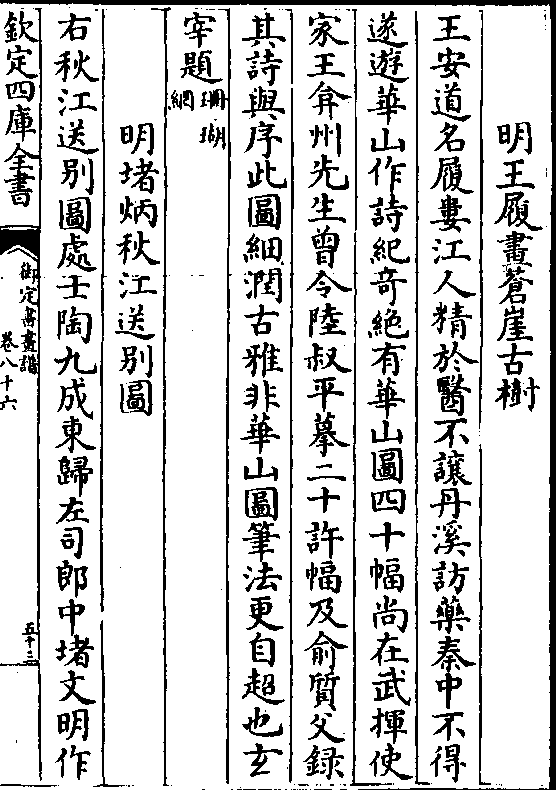 明王履畫蒼崖古樹
王安道名履婁江人精於醫不讓丹溪訪藥秦中不得
遂遊華山作詩紀竒絶有華山圖四十幅尚在武揮使
家王弇州先生曾令陸叔平摹二十許幅及俞質父録
其詩與序此圖細潤古雅非華山圖筆法更自超也玄
宰題珊瑚網
明堵炳秋江送别圖
右秋江送别圖處士陶九成東歸左司郎中堵文明作
欽定四庫全書
御定書畫譜
卷八十六
五十三